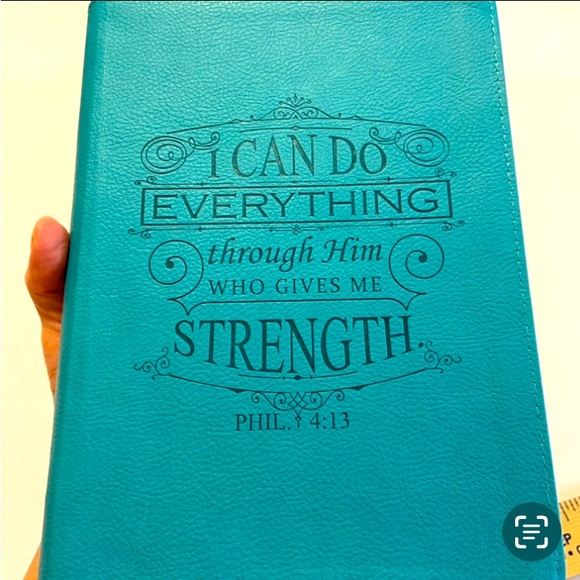 I CAN DO
EVERYTHING
through Him
WHO GIVES ME
STRENGTH.
PHIL. 4:13